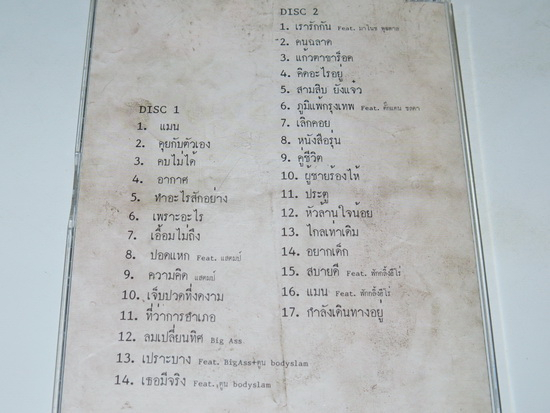 DISC 1
1. แมน
2. คุยกับตัวเอง
3. คบไม่ได้
4. อากาศ
5. ทำอะไรสักอย่าง
6. เพราะอะไร
7. เอื้อมไม่ถึง
8. ปอดแหก Feat. แสตมป์
9. ความคิด แสตมป์
10. เจ็บปวดที่งดงาม
11. ที่ว่าการอำเภอ
12. ลมเปลี่ยนทิศ Big Ass
13. เปราะบาง Feat. BigAss+ตูน bodyslam
14. เธอมีจริง Feat. ตูน bodyslam
DISC 2
1. เรารักกัน Feat.
2. คนฉลาด
3. แก้วตาขาร็อค
4. คิดอะไรอยู่
5. สามสิบ ยังแจ๋ว
6. ภูมิแพ้กรุงเทพ Feat. ตั๊กแตน ชลดา
7. เลิกคอย
8. หนังสือรุ่น
9. คู่ชีวิต
10. ผู้ชายร้องไห้
11. ประตู
12. หัวล้านใจน้อย
13. ไกลเท่าเดิม
14. อยากเด็ก
15. สบายดี Feat.
16. แมน Feat.
17. กำลังเดินทางอยู่